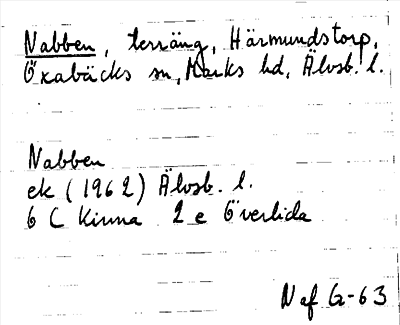 Nabben, terräng, Härmundstorp,
Öxabäcks sn, Marks hd, Älvsb. l.
Nabben
ek (1962) Älvsb. l.
6 C Kinna 2 e Överlida
Naf G-63